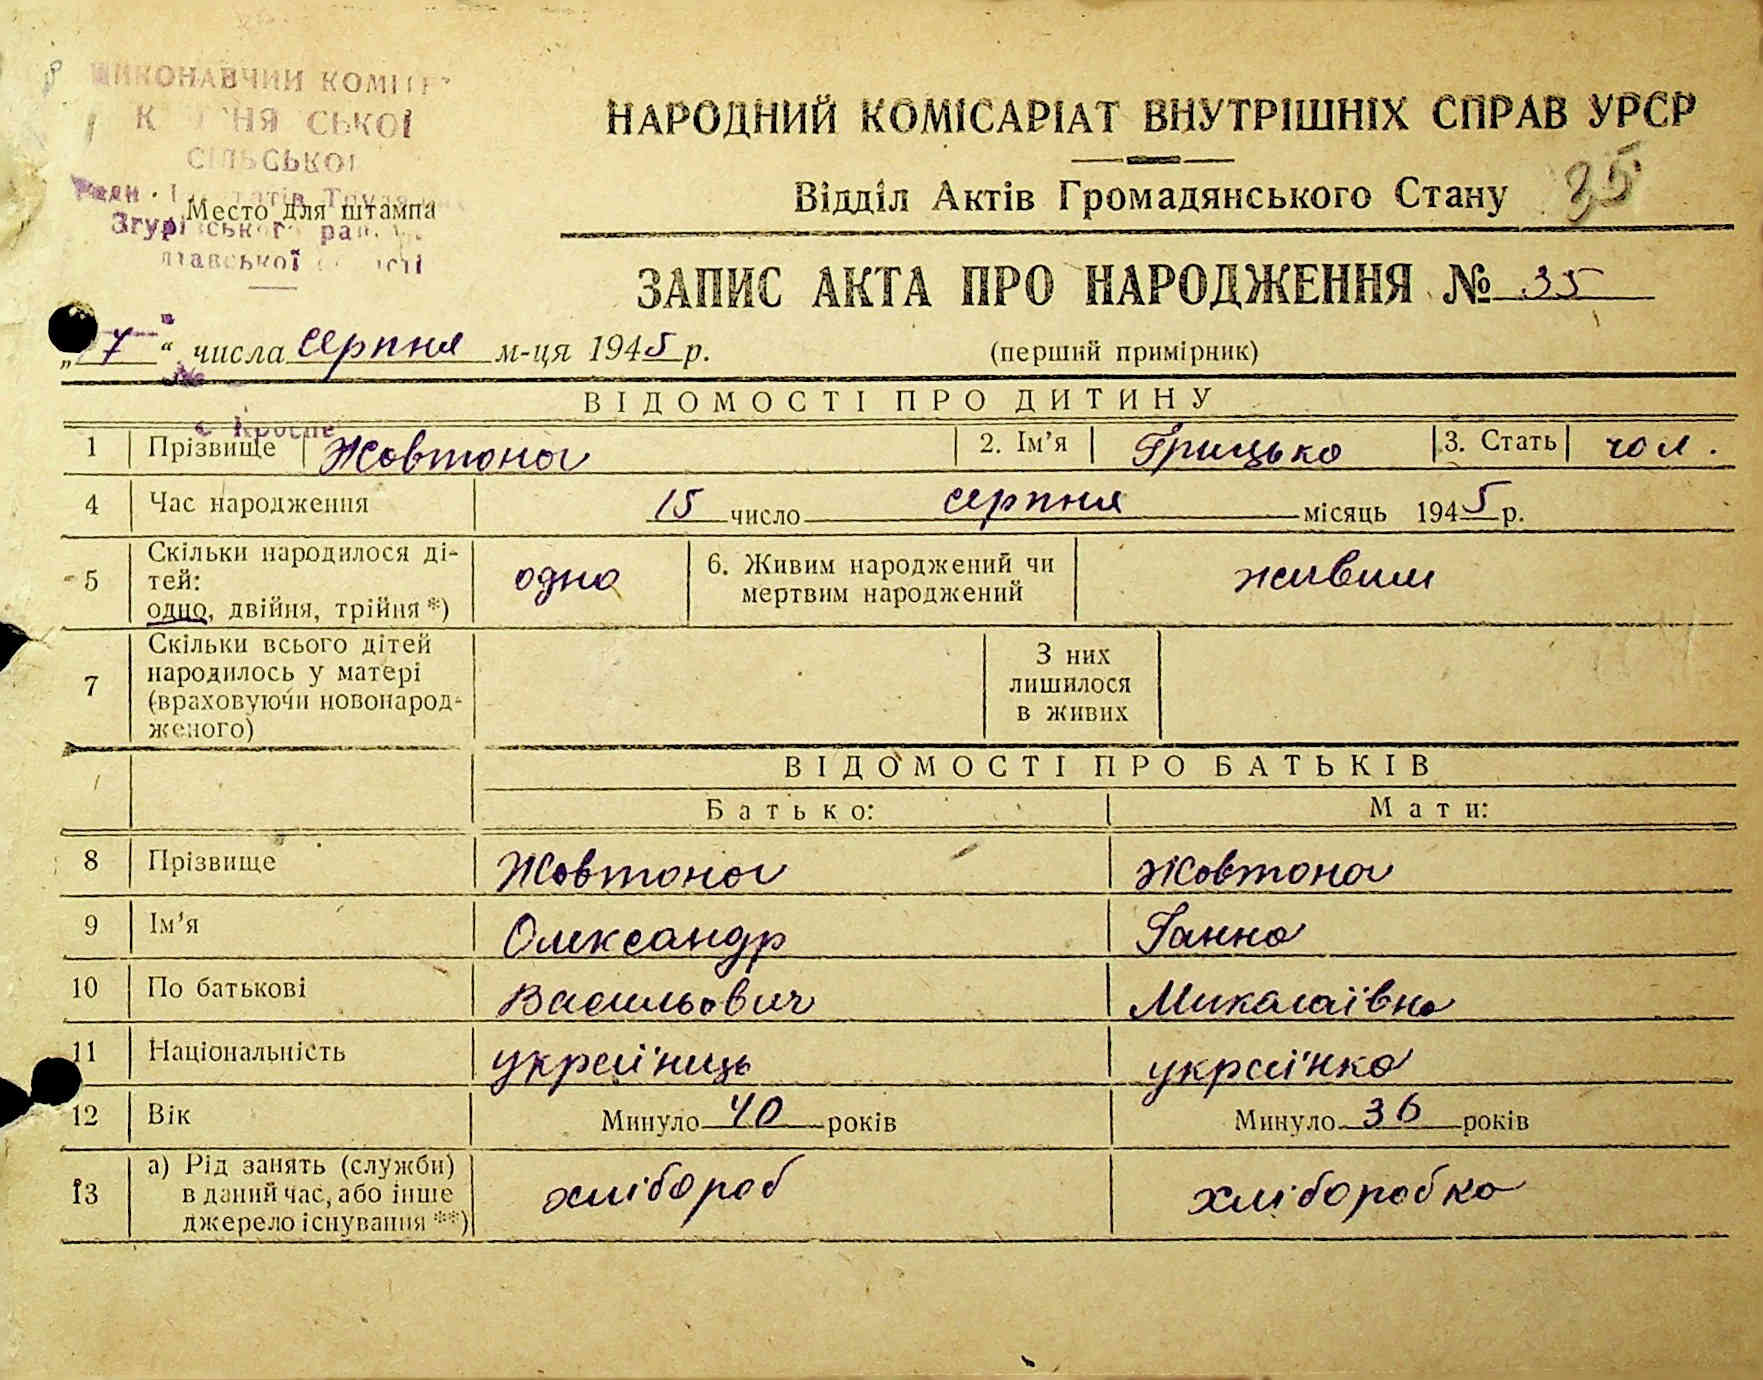 СІЛЬСЬКОЇ
Место для штампа
НАРОДНИЙ КОМІСАРІАТ ВНУТРІШНІХ СПРАВ УРСР
Відділ Актів Громадянського Стану 35
ЗАПИС АКТА ПРО НАРОДЖЕННЯ № 35
(перший примірник)
числа серпня м-ця 1945 р.
ВІДОМОСТІ ПРО ДИТИНУ
1 Прізвище Жовтонога 2. Ім'я Грицько 3. Стать чол.
4 Час народження 15 число серпня місяць 1945 р.
5 Скільки народилося ді-
тей:
одно, двійня, трійня *)
одно
6. Живим народжений чи
мертвим народжений
живим
7 Скільки всього дітей
народилось у матері
(враховуючи новонарод-
женого)
З них
лишилося
в живих
ВІДОМОСТІ ПРО БАТЬКІВ
Батько: Мати:
8 Прізвище Жовтоног Жовтонога
9 Ім'я Олександр Ганна
10 По батькові Васильович Миколаївна
11 Національність українець українка
12 Вік Минуло 40 років Минуло 36 років
13 а) Рід занять (служби)
в даний час, або інше
джерело існування **)
хлібороб хлiборобка